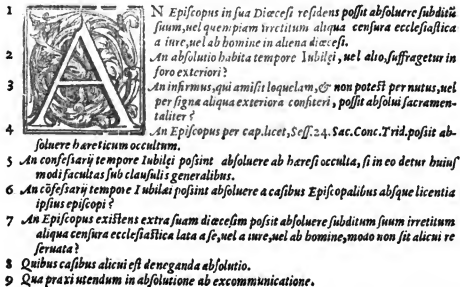 1 AN Episcopus in sua Diœcesi residens possit absoluere subditū
suum, uel quempiam irretitum aliqua censura ecclesiastica
a iure, uel ab homine in aliena diœcesi.
2 An absolutio habita tempore Iubilęi, uel alio, suffragetur in
foro exteriori?
3 An infirmus, qui amisit loquelam, & non potest per nutus, uel
per signa aliqua exteriora confiteri, possit absolui sacramen-
taliter?
4 An Episcopus per cap. licet, Sess. 24. Sac. Conc. Trid. possit ab-
soluere hæreticum occultum.
5 An confessarij tempore Iubilęi possint absoluere ab hæresi occulta, si in eo detur huius
modi facultas sub clausulis generalibus.
6 An cōfessarij tempore Iubilæi possint absoluere a casibus Episcopalibus absque licentia
ipsius episcopi?
7 An Episcopus existens extra suam diœcesim possit absoluere subditum suum irretitum
aliqua censura ecclesiastica lata a se, uel a iure, uel ab homine, modo non sit alicui re
seruata?
8 Quibus casibus alicui est deneganda absolutio.
9 Qua praxi utendum in absolutione ab excommunicatione.